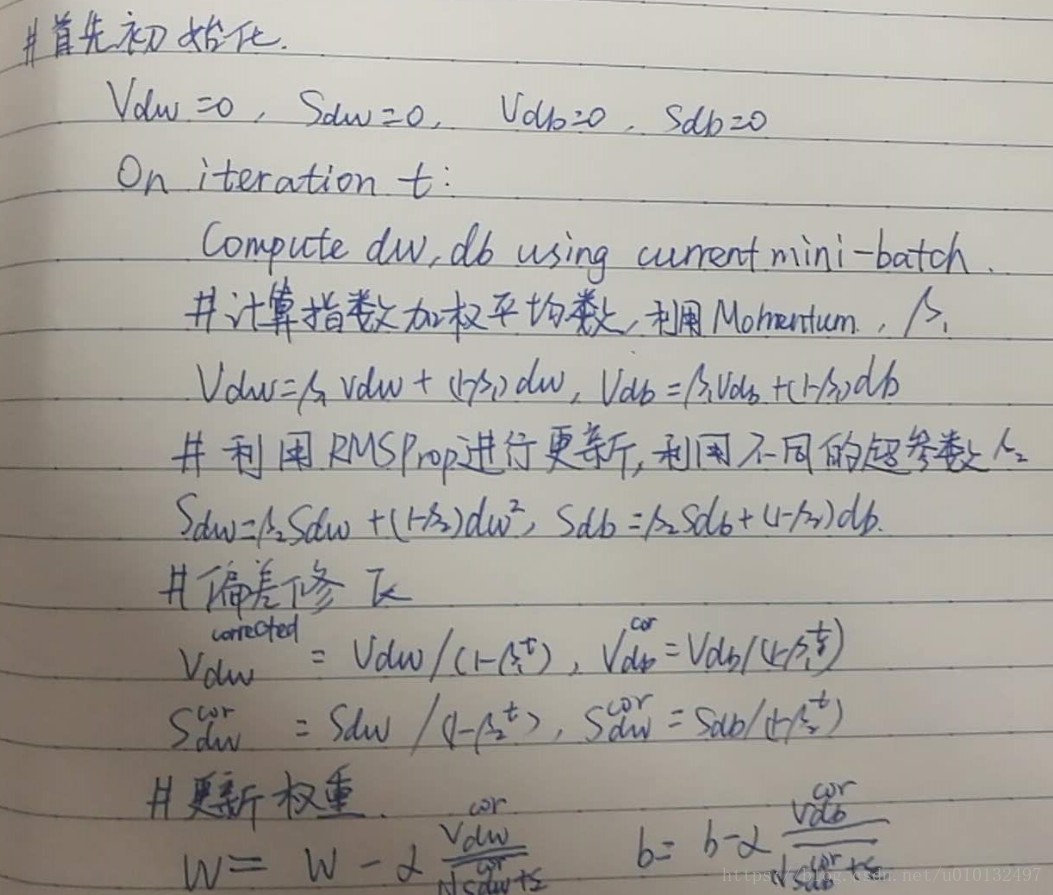 #首先初始化.
Vdw=0, Sdw=0, Vdb=0, Sdb=0
On iteration t:
Compute dw, db using current mini-batch.
#计算指数加权平均数,利用Momentum, β₁
Vdw=β₁Vdw+(1-β₁)dw, Vdb=β₁Vdb+(1-β₁)db
#利用RMSProp进行更新,利用不同的超参数β₂
Sdw=β₂Sdw+(1-β₂)dw², Sdb=β₂Sdb+(1-β₂)db.
#偏差修正
Vdw^corrected = Vdw/(1-β₁^t), Vdb^cor=Vdb/(1-β₁^t)
Sdw^cor = Sdw/(1-β₂^t), Sdw^cor = Sdb/(1-β₂^t)
#更新权重.
W = W - α Vdw^cor/(√Sdw^cor+ε) b = b-α Vdb^cor/(√Sdb^cor+ε)
https://blog.csdn.net/u010132497